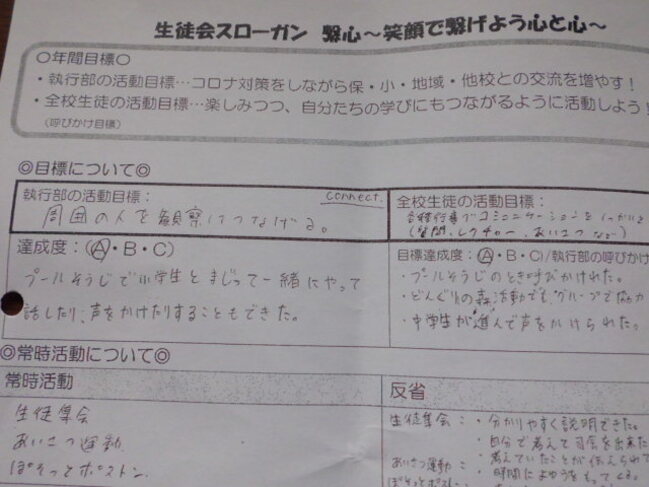 生徒会スローガン 繋心～笑顔で繋げよう心と心～
〇年間目標〇
・執行部の活動目標…コロナ対策をしながら保・小・地域・他校との交流を増やす！
・全校生徒の活動目標…楽しみつつ、自分たちの学びにもつながるように活動しよう！
(呼びかけ目標)
◎目標について◎
執行部の活動目標： connect.
周囲の人を観察につなげる。
達成度：(A・B・C)
プールそうじで小学生とまじって一緒にやって
話したり、声をかけたりすることもできた。
全校生徒の活動目標：
各種行事でコミュニケーションを
(質問、レクチャー、あいさつ など)
目標達成度：(A・B・C)/執行部の呼びかけ
・プールそうじのとき呼びかけれた。
・どんぐりの森活動でも、グループで協力
・中学生が進んで声をかけられた。
◎常時活動について◎
常時活動
生徒集会
あいさつ運動
ぼそっとポストン
反省
生徒集会：・分かりやすく説明できた。
・自分で考えて司会を出来た
あいさつ運動：・考えていたことが伝えられて
ぼそっとポストン：・時間によゆうをもって